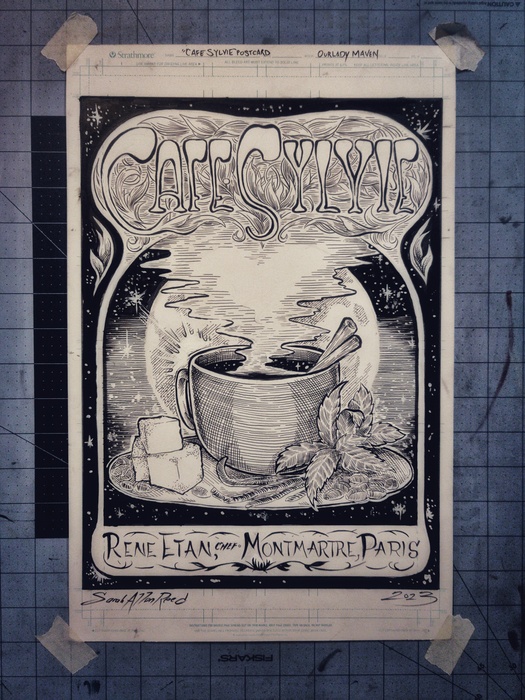 Strathmore "CAFE SYLVIE" POSTCARD OURLADY MAVEN
CAFE SYLVIE
RENE ETAN, CHEF· MONTMARTRE, PARIS
Sarah Allen Reed 2023
FISKARS